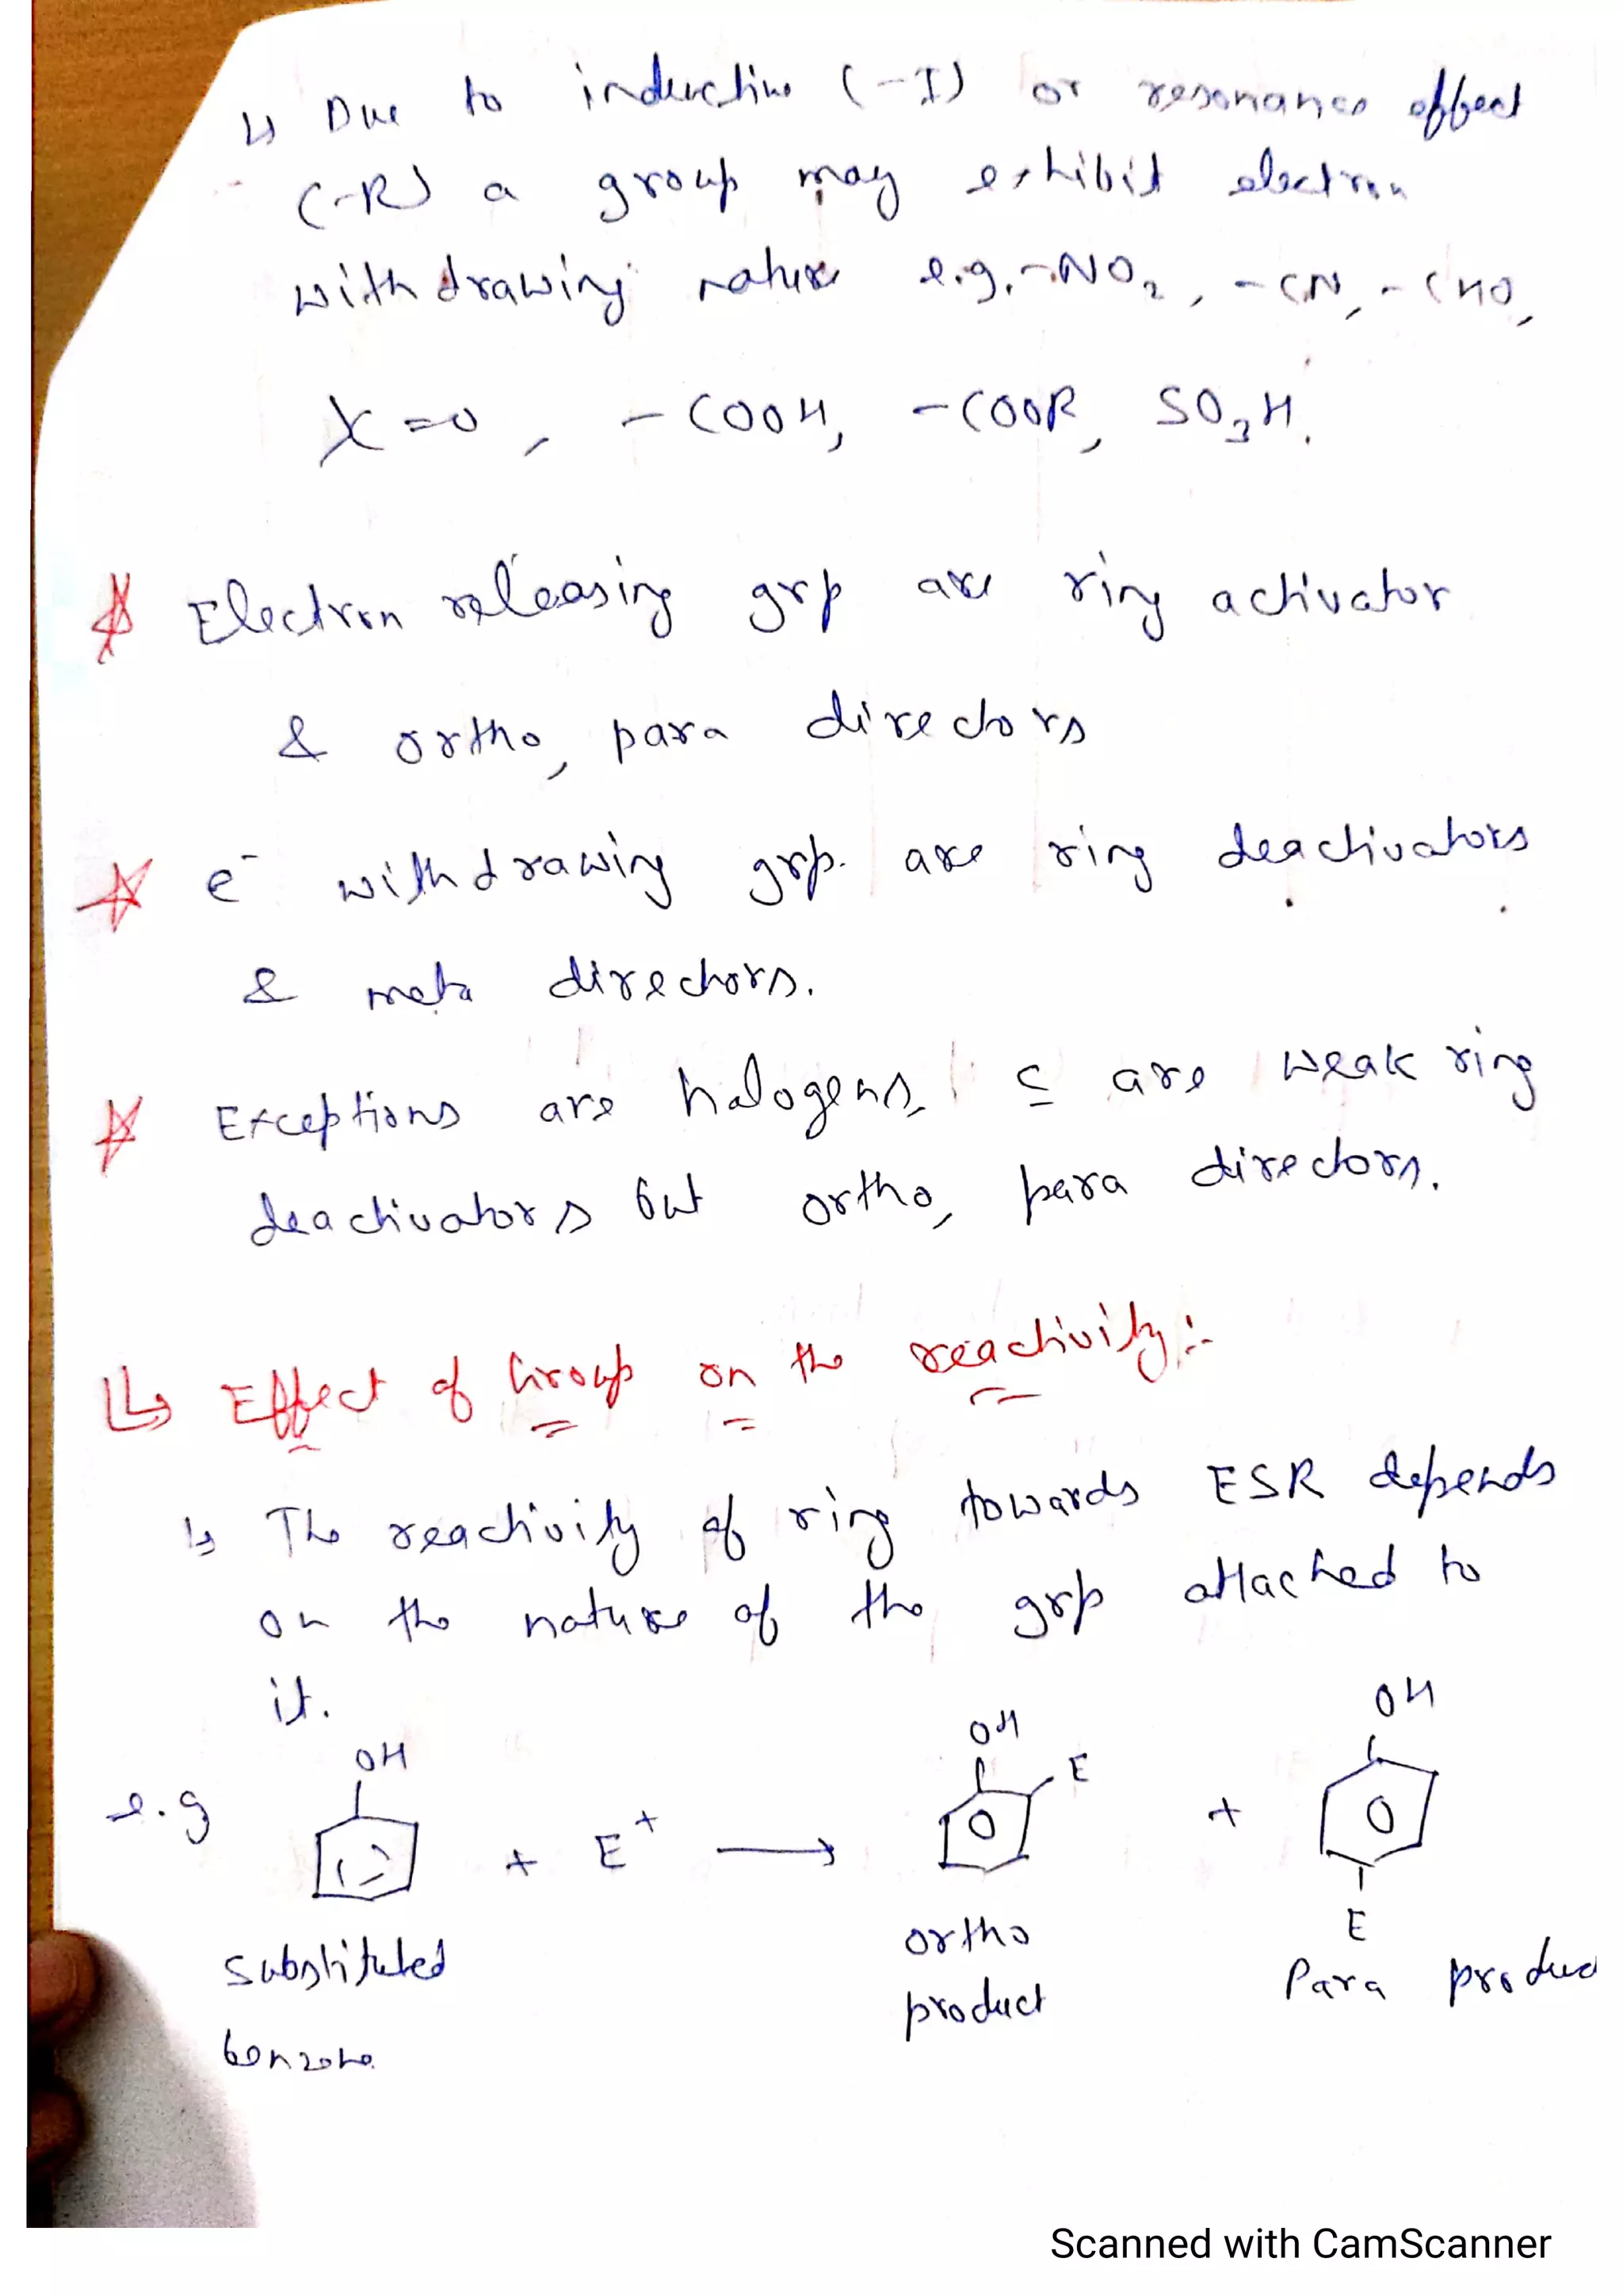 ↳ Due to inductive (-I) or resonance effect
(-R) a group may exhibit electron
withdrawing nature e.g. -NO₂, -CN, -CHO,
>=O, -COOH, -COOR, SO₃H.
☆ Electron releasing grp are ring activator
& ortho, para directors
☆ e⁻ withdrawing grp. are ring deactivators
& meta directors.
☆ Exceptions are halogens, c are weak ring
deactivators but ortho, para directors.
↳ Effect of Group on the reactivity:-
↳ The reactivity of ring towards ESR depends
on the nature of the grp attached to
it.
e.g OH + E⁺ ⟶ OH E + OH E
substituted benzene
ortho product
Para produc
Scanned with CamScanner